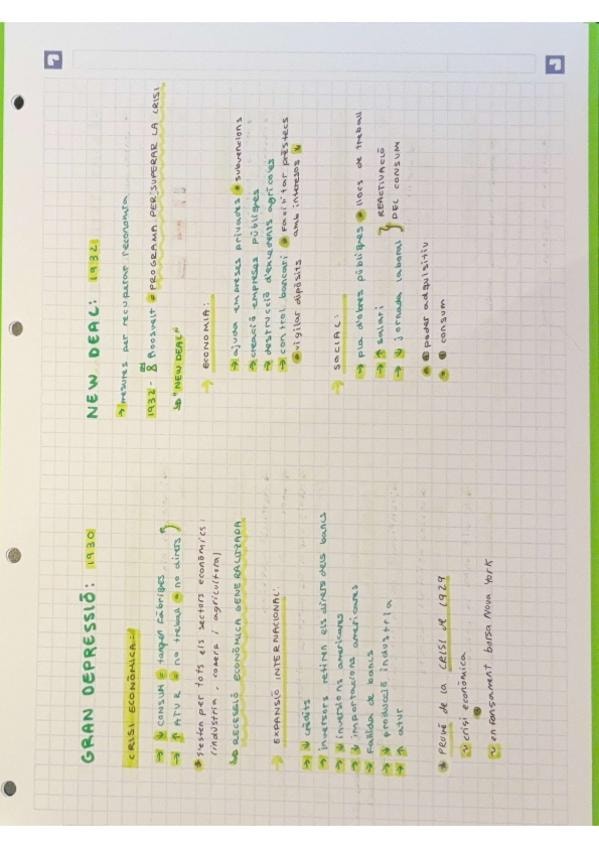 GRAN DEPRESSIÓ: 1930
CRISI ECONÒMICA:
→ ↓ CONSUM = tanquen fàbriques
→ ↑ ATUR = no treball = no diners }
s'esten per tots els sectors econòmics:
(indústria, comerç i agricultura)
↳ RECESSIÓ ECONÒMICA GENERALITZADA
→ EXPANSIÓ INTERNACIONAL:
→ ↓ crèdits
→ inversors retiren els diners dels bancs
→ ↓ inversions americanes
→ ↓ importacions americanes
→ Fallida de bancs
→ ↓ producció indústria
→ ↑ atur
PROVÉ de la CRISI de 1929
crisi econòmica
enfonsament borsa Nova York
NEW DEAL: 1932
→ mesures per recuperar l'economia
1932 - Roosvelt = PROGRAMA PER SUPERAR LA CRISI
↳ "NEW DEAL"
→ ECONOMIA:
→ ajuda empreses privades = subvencions
→ creació empreses públiques
→ destrucció d'excedents agrícoles
→ control bancari = Facilitar préstecs
vigilar dipòsits amb interesos ↓
→ SOCIAL:
→ pla d'obres públiques = llocs de treball
→ ↑ salari } REACTIVACIÓ
→ ↓ jornada laboral } DEL CONSUM
poder adquisitiu
consum